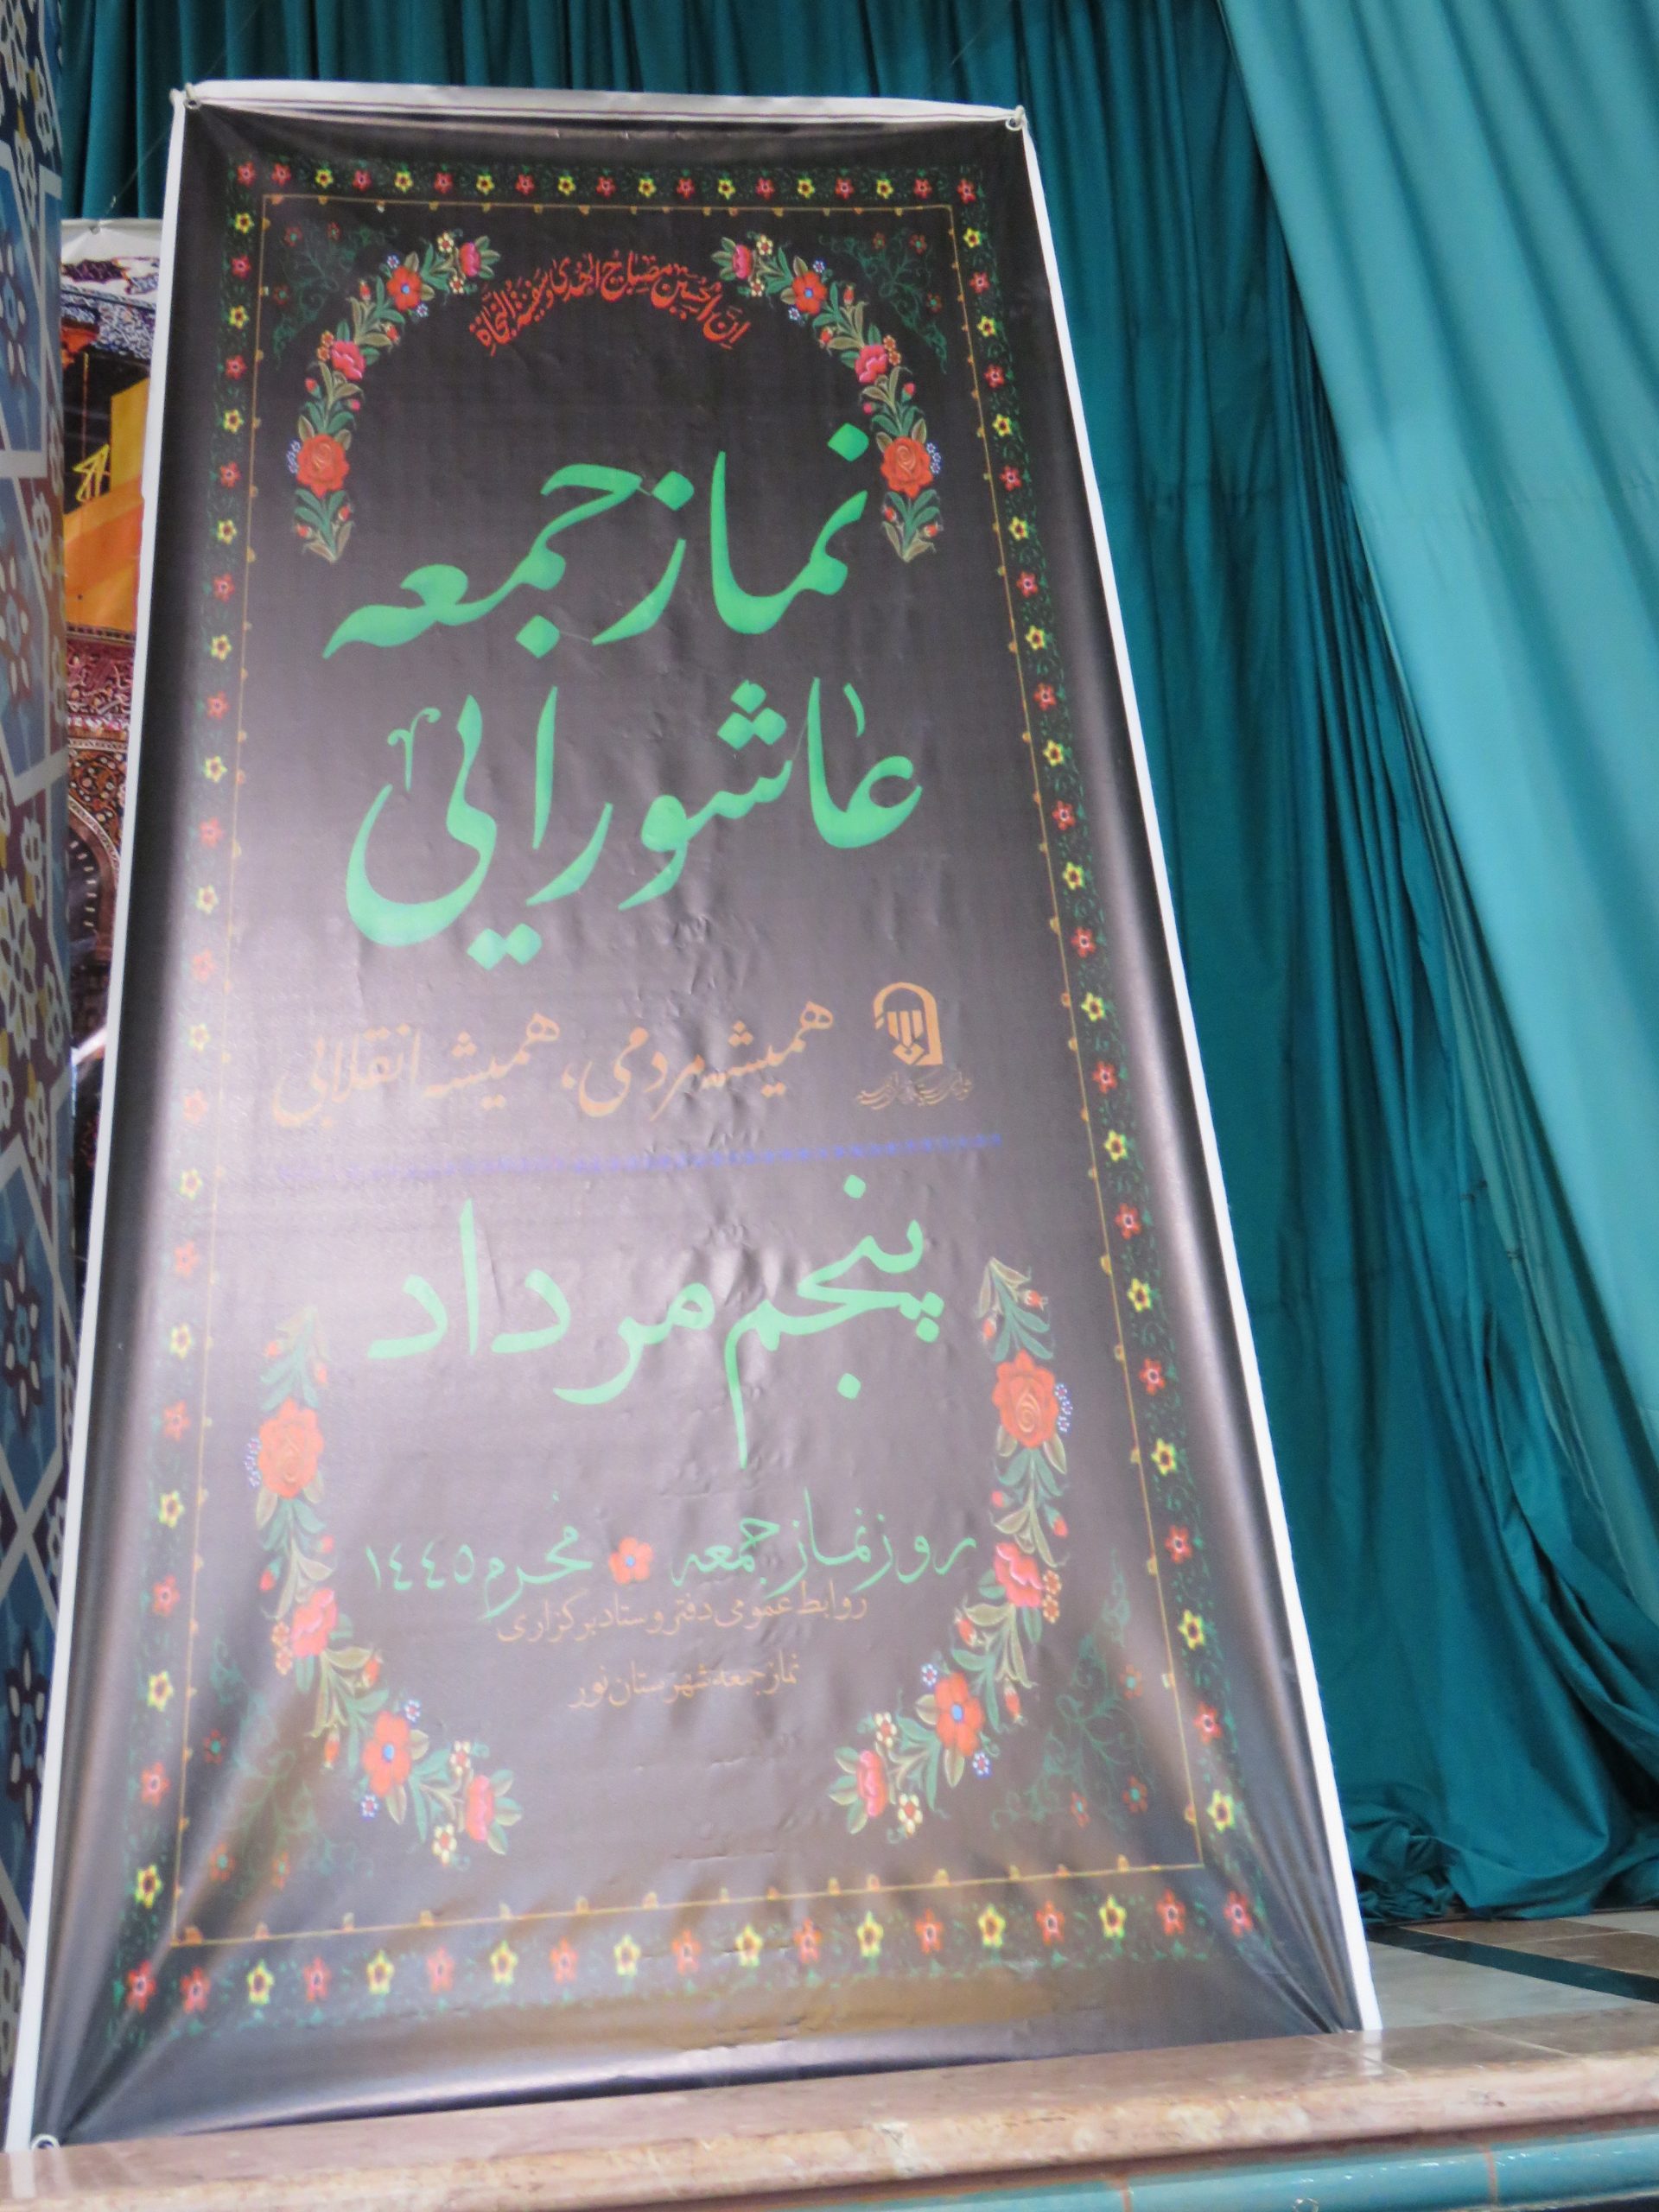 إِنَّ الحُسَین مِصباحُ الهُدیٰ وَ سَفینَةُ النَّجاة
نماز جمعه
عاشورایی
همیشه مردمی، همیشه انقلابی
پنجم مرداد
روز نماز جمعه
محرم ۱٤٤٥
روابط عمومی دفتر و ستاد برگزاری
نماز جمعه شهرستان نور